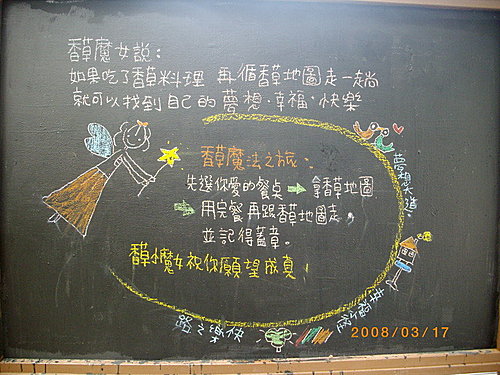 香草魔女說:
如果吃了香草料理 再循香草地圖走一趟
就可以找到自己的夢想、幸福、快樂
香草魔法之旅、
先選你愛的餐桌 → 拿香草地圖
→ 用完餐再跟香草地圖走,
並記得蓋章。
香草小魔女祝你願望成真!
夢想大道
幸福小徑
快樂之路
2008/03/17